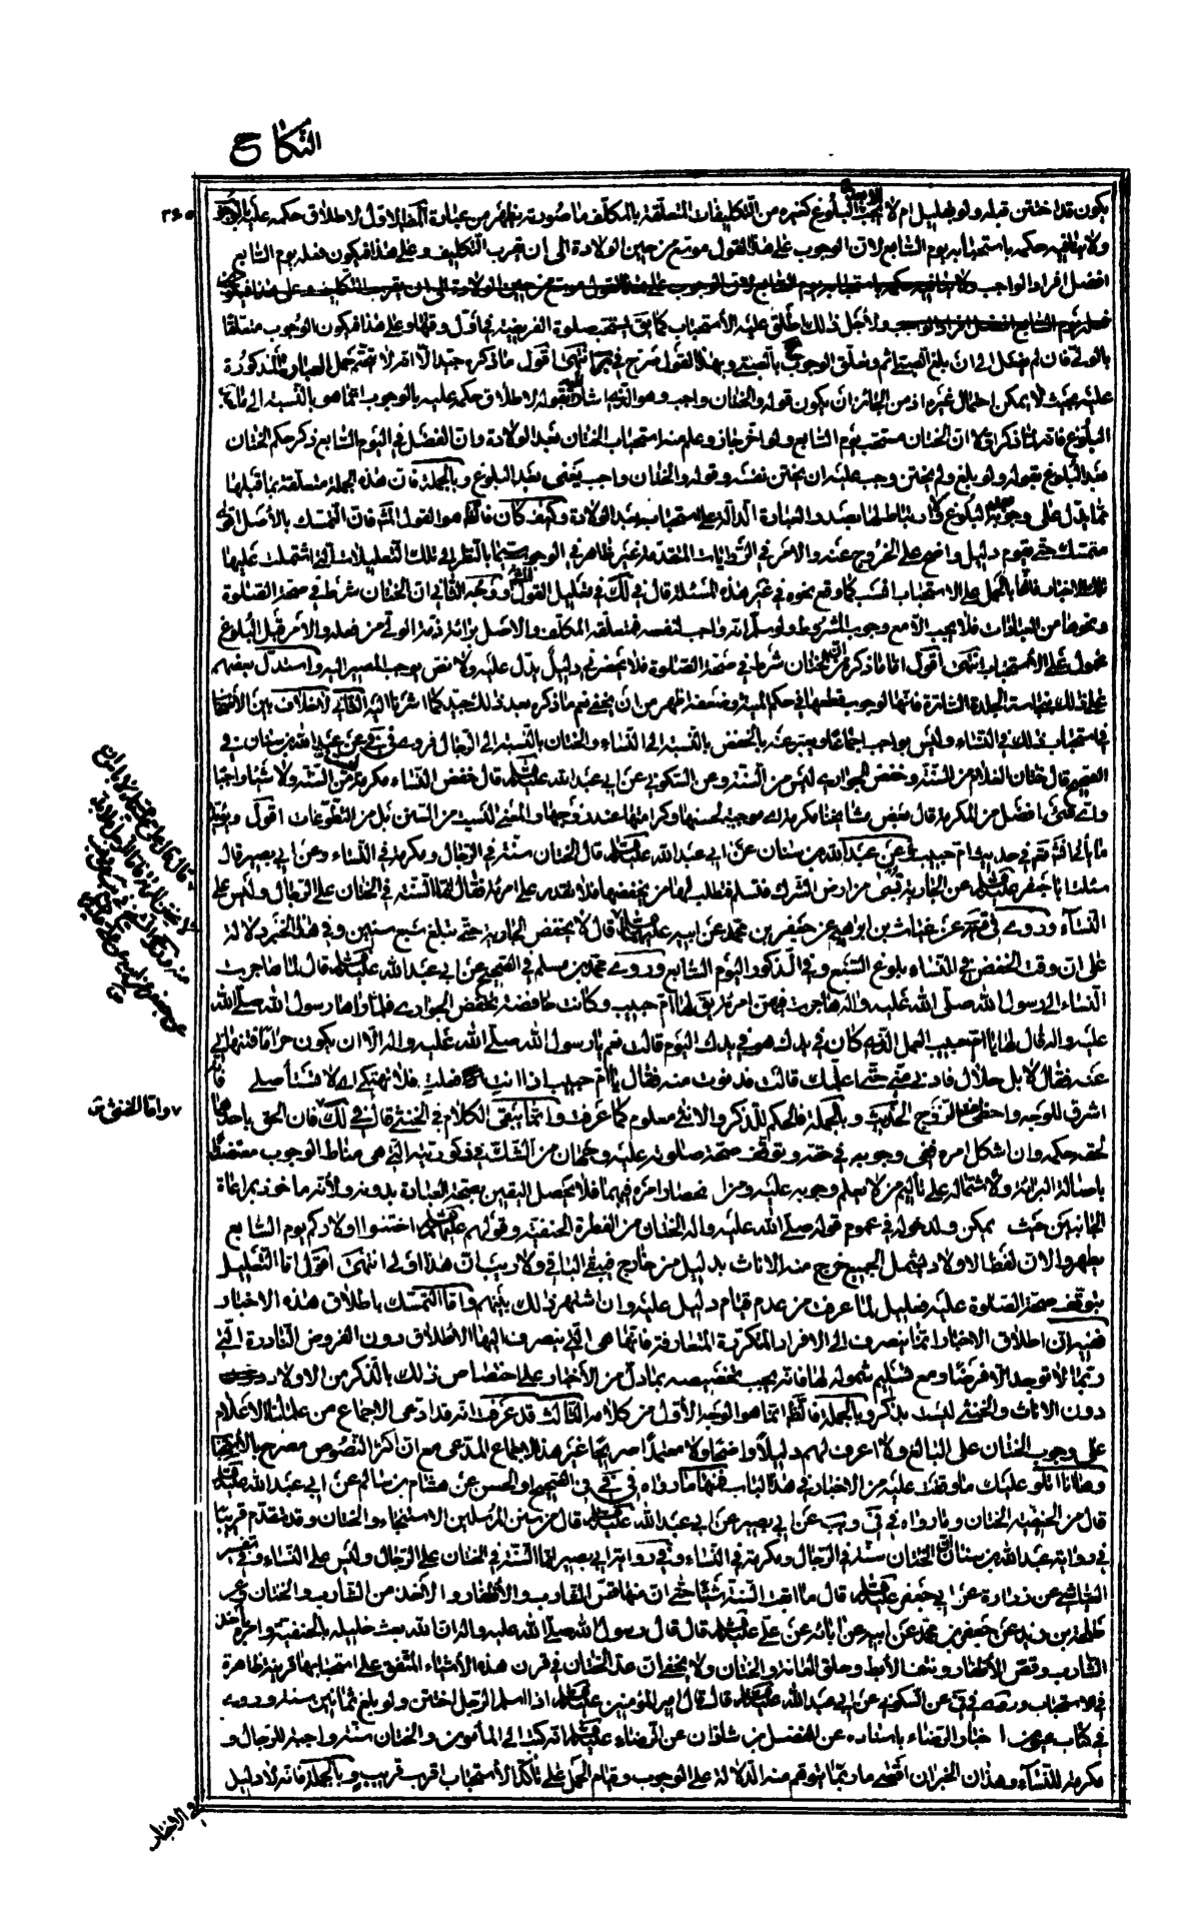 النكاح
٣٤٥
يكون قد اختتن قبله ولو بقليل ام لا يجب الا بعد البلوغ كغيره من التكليفات المتعلقة بالمكلف ما صورته يظهر من عبارة المصنف الاول لاطلاق حكمه عليه بالوجوب
ولا ينافيه حكمه باستحبابه يوم السابع لان الوجوب على هذا القول موسع من حين الولادة الى ان يقرب التكليف وعلى هذا فيكون فعله يوم السابع
افضل افراد الواجب
ولاجل ذلك اطلق عليه الاستحباب كما يقال يستحب صلوة الفريضة في اول وقتها وعلى هذا فيكون الوجوب متعلقا
بالولي فان لم يفعل الى ان بلغ الصبي اثم وتعلق الوجوب ح بالصبي وبهذا القول صرح في انتهى اقول ما ذكره جيد الا انه لا يتحتم حمل العبارة المذكورة
عليه بحيث لا يمكن احتمال غيره اذ من الجائز ان يكون قوله والختان واجب وهو الذي اشار اليه بقوله لاطلاق حكمه عليه بالوجوب انما هو بالنسبة الى ما بعد
البلوغ فانه لما ذكر اولا ان الختان مستحب يوم السابع ولو اخر جاز وعلم منه استحباب الختان بعد الولادة وان الفضل في اليوم السابع ذكر حكم الختان
بعد البلوغ بقوله ولو بلغ ولم يختتن وجب عليه ان يختن نفسه وقوله والختان واجب يعني بعد البلوغ وبالجملة فان هذه الجملة متعلقة بما قبلها
مما يدل على وجوبه بعد البلوغ لا ارتباط لها بصدر العبارة الدالة على استحبابه بعد الولادة وكيف كان فالظاهر هو القول المشهور فان التمسك بالاصل اقوى
متمسك حتى يقوم دليل واضح على الخروج عنه والامر في الروايات المتقدمة غير ظاهر في الوجوب سيما بالنظر الى تلك التعليلات التي اشتملت عليها
تلك الاخبار فانها بالحمل على الاستحباب انسب كما وقع نحوه في غير هذه المسئلة قال في لك في تعليل القول المشهور ووجه الثاني ان الختان شرط في صحة الصلوة
ونحوها من العبادات فلا يجب الا مع وجوب المشروط ولو سلم انه واجب لنفسه فمتعلقه المكلف والاصل برائة ذمة الولي من فعله والامر قبل البلوغ
محمول على الاستحباب انتهى اقول اما ما ذكره من ان الختان شرط في صحة الصلوة فلا يحضرني دليل يدل عليه ولا نص يوجب المصير اليه واستدل بعضهم
على ذلك بنجاسة الجلدة الساترة فانها لوجوب قطعها في حكم الميتة وضعفه اظهر من ان يخفى نعم ما ذكره بعد ذلك جيد كما اشرنا اليه الثاني لا خلاف بين الاصحاب
في استحباب ذلك في النساء وليس بواجب اجماعا ويعبر عنه بالخفض بالنسبة الى النساء والختان بالنسبة الى الرجال فروى في في عن عبد الله بن سنان في
الصحيح قال ختان الغلام من السنة وخفض الجواري ليس من السنة وعن السكوني عن ابي عبد الله عليه السلام قال خفض النساء مكرمة وليس من السنة ولا شيئا واجبا
واي شيء افضل من المكرمة قال بعض مشايخنا مكرمة اي موجبة لحسنها وكرامتها عند زوجها والمعنى ليست من السنن بل من التطوعات اقول
ما يأتي انشاء الله في حديث ام حبيب وعن عبد الله بن سنان عن ابي عبد الله عليه السلام قال الختان سنة في الرجال ومكرمة في النساء وعن ابي بصير قال
سئلت ابا جعفر عليه السلام عن الجارية تسبى من ارض الشرك فتسلم فتطلب لها من يخفضها فلا نقدر على امرأة فقال انما السنة في الختان على الرجال وليس على
النساء وروى في عن غياث بن ابراهيم عن جعفر بن محمد عن ابيه عن علي عليه السلام قال لا تخفض الجارية حتى تبلغ سبع سنين وفي هذا الخبر دلالة
على ان وقت الخفض في النساء بلوغ السبع وفي الذكور اليوم السابع وروى محمد بن مسلم في الصحيح عن ابي عبد الله عليه السلام قال لما هاجرت
النساء الى رسول الله صلى الله عليه وآله هاجرت فيهن امرأة يق لها ام حبيب وكانت خافضة تخفض الجواري فلما رآها رسول الله صلى الله
عليه وآله قال لها يا ام حبيب العمل الذي كان في يدك هو في يدك اليوم قالت نعم يا رسول الله صلى الله عليه وآله الا ان يكون حراما فتنهاني
عنه فقال لا بل حلال فادني مني حتى اعلمك قالت فدنوت منه فقال يا ام حبيب اذا انت فعلت فلا تنهكي اى لا تستأصلي واشمي فانه
اشرق للوجه واحظى عند الزوج الحديث وبالجملة فالحكم للذكر والانثى معلوم كما عرفت وانما يبقى الكلام في الخنثى قال في لك فان الحق باحدهما
لحقه حكمه وان اشكل امره ففي وجوبه في حقه وتوقف صحة صلوته عليه وجهان من الشك في ذكوريته التي هي مناط الوجوب معتضدا
باصالة البرائة ولاشتماله على تأليم من لا يعلم وجوبه عليه ومن انحصار امره فيهما فلا يحصل اليقين بصحة العبادة بدونه ولانه مأخوذ بمراعاة
الجانبين حيث يمكن ولدخوله في عموم قوله صلى الله عليه وآله الختان من الفطرة الحنيفية وقولهم عليهم السلام اختنوا اولادكم يوم السابع
يطهروا لان لفظ الاولاد يشمل الجميع خرج منه الاناث بدليل من خارج فيبقى الباقي ولا ريب ان هذا اولى انتهى اقول اما التعليل
بتوقف صحة الصلوة عليه فعليل لما عرفت من عدم قيام دليل عليه وان اشتهر ذلك بينهم واما التمسك باطلاق هذه الاخبار
ففيه ان اطلاق الاخبار انما ينصرف الى الافراد المتكررة المتعارفة فانها هي التي ينصرف اليها الاطلاق دون الفروض النادرة التي
ربما لا توجد الا فرضا ومع تسليم شموله لها فانه يجب تخصيصه بما دل من الاخبار على اختصاص ذلك بالذكر من الاولاد
دون الاناث والخنثى ليست بذكر وبالجملة فالظاهر انما هو الوجه الاول من كلامه الثالث قد عرفت انه قد ادعى الاجماع من علمائنا الاعلام
على وجوب الختان على البالغ ولا اعرف لهم دليلا واضحا ولا معتمدا صريحا غير هذا الاجماع المدعى مع ان اكثر النصوص مصرح بالاستحباب
وها انا اتلو عليك ما وقفت عليه من الاخبار في هذا الباب فمنها ما رواه في في في الصحيح او الحسن عن هشام بن سالم عن ابي عبد الله عليه السلام
قال من الحنيفية الختان وما رواه في في ويب عن ابي بصير عن ابي عبد الله عليه السلام قال من سنن المرسلين الاستنجاء والختان وقد تقدم قريبا
في رواية عبد الله بن سنان ان الختان سنة في الرجال ومكرمة في النساء وفي رواية ابي بصير انما السنة في الختان على الرجال وليس على النساء وفي تفسير
العياشي عن زرارة عن ابي جعفر عليه السلام قال ما ابقت السنة شيئا حتى ان منها قص الشارب والاظفار والاخذ من الشارب والختان وعن
طلحة بن زيد عن جعفر بن محمد عن ابيه عن ابائه عن علي عليه السلام قال قال رسول الله صلى الله عليه وآله ان الله بعث خليله بالحنيفية وامره باخذ
الشارب وقص الاظفار ونتف الابط وحلق العانة والختان ولا يخفى ان عد الختان في قرن هذه الاشياء المتفق على استحبابها قرينة ظاهرة
في الاستحباب وروى في في عن السكوني عن ابي عبد الله عليه السلام قال قال امير المؤمنين عليه السلام اذا اسلم الرجل اختتن ولو بلغ ثمانين سنة وروى
في كتاب عيون اخبار الرضاء باسناده عن الفضل بن شاذان عن الرضاء عليه السلام انه كتب الى المأمون والختان سنة واجبة للرجال و
مكرمة للنساء وهذان الخبران اقصى ما ربما يتوهم منه الدلالة على الوجوب وقيام الحمل على تأكد الاستحباب اقرب قريب وبالجملة فانه لا دليل
واما الخنثى
في الاخبار